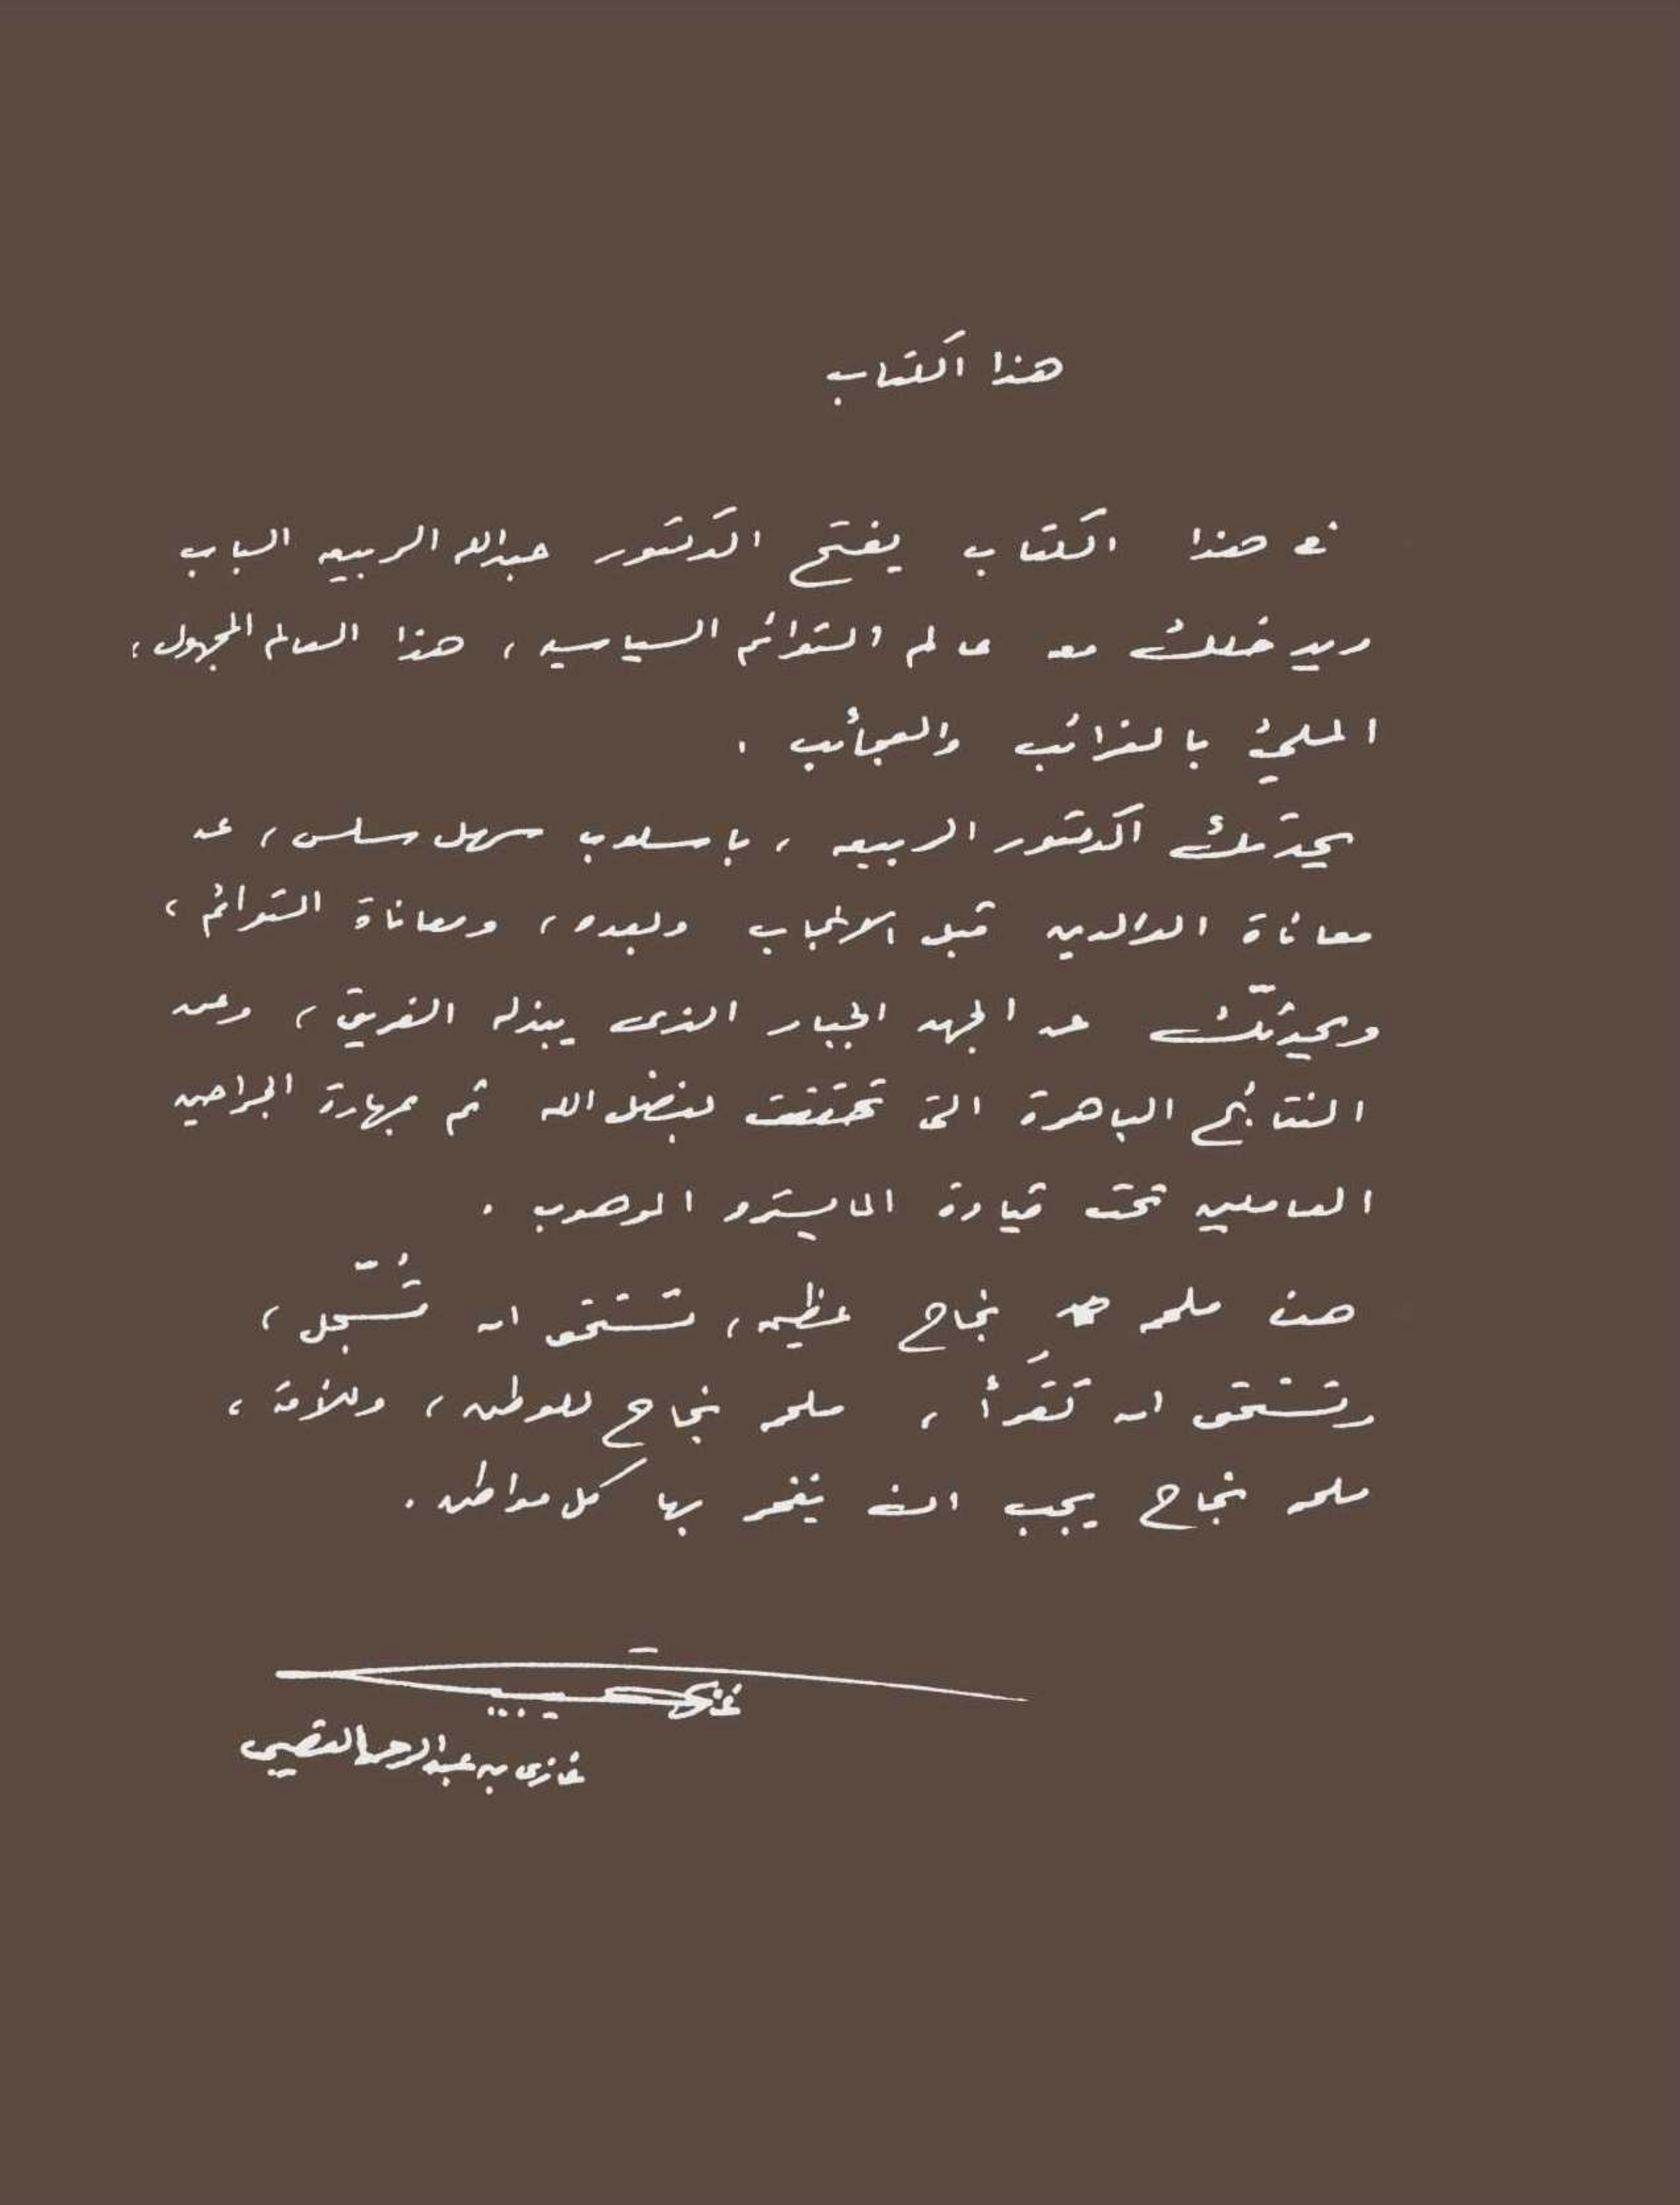 هذا الكتاب
في هذا الكتاب يفتح الدكتور عبدالله الربيعه الباب
ويدخلك معه عالم التوائم السياميه، هذا العالم المجهول،
المليئ بالغرائب والعجائب.
يحدثك الدكتور الربيعه، باسلوب سهل سلس، عن
معاناة الوالدين قبل الانجاب وبعده، ومعاناة التوائم،
ويحدّثك عن الجهد الجبار الذى يبذله الفريق، وعن
النتائج الباهرة التى تحققت بفضل الله ثم بمهارة الجراحين
العاملين تحت قيادة المايسترو الموهوب.
هذه ملحمه نجاح عظيمه، تستحق ان تُسّجل،
وتستحق ان تقَرأ، ملحمه نجاح للوطن، وللأمة،
ملحمه نجاح يجب ان يفخر بها كل مواطن.
غازى بن عبدالرحمن القصيبي